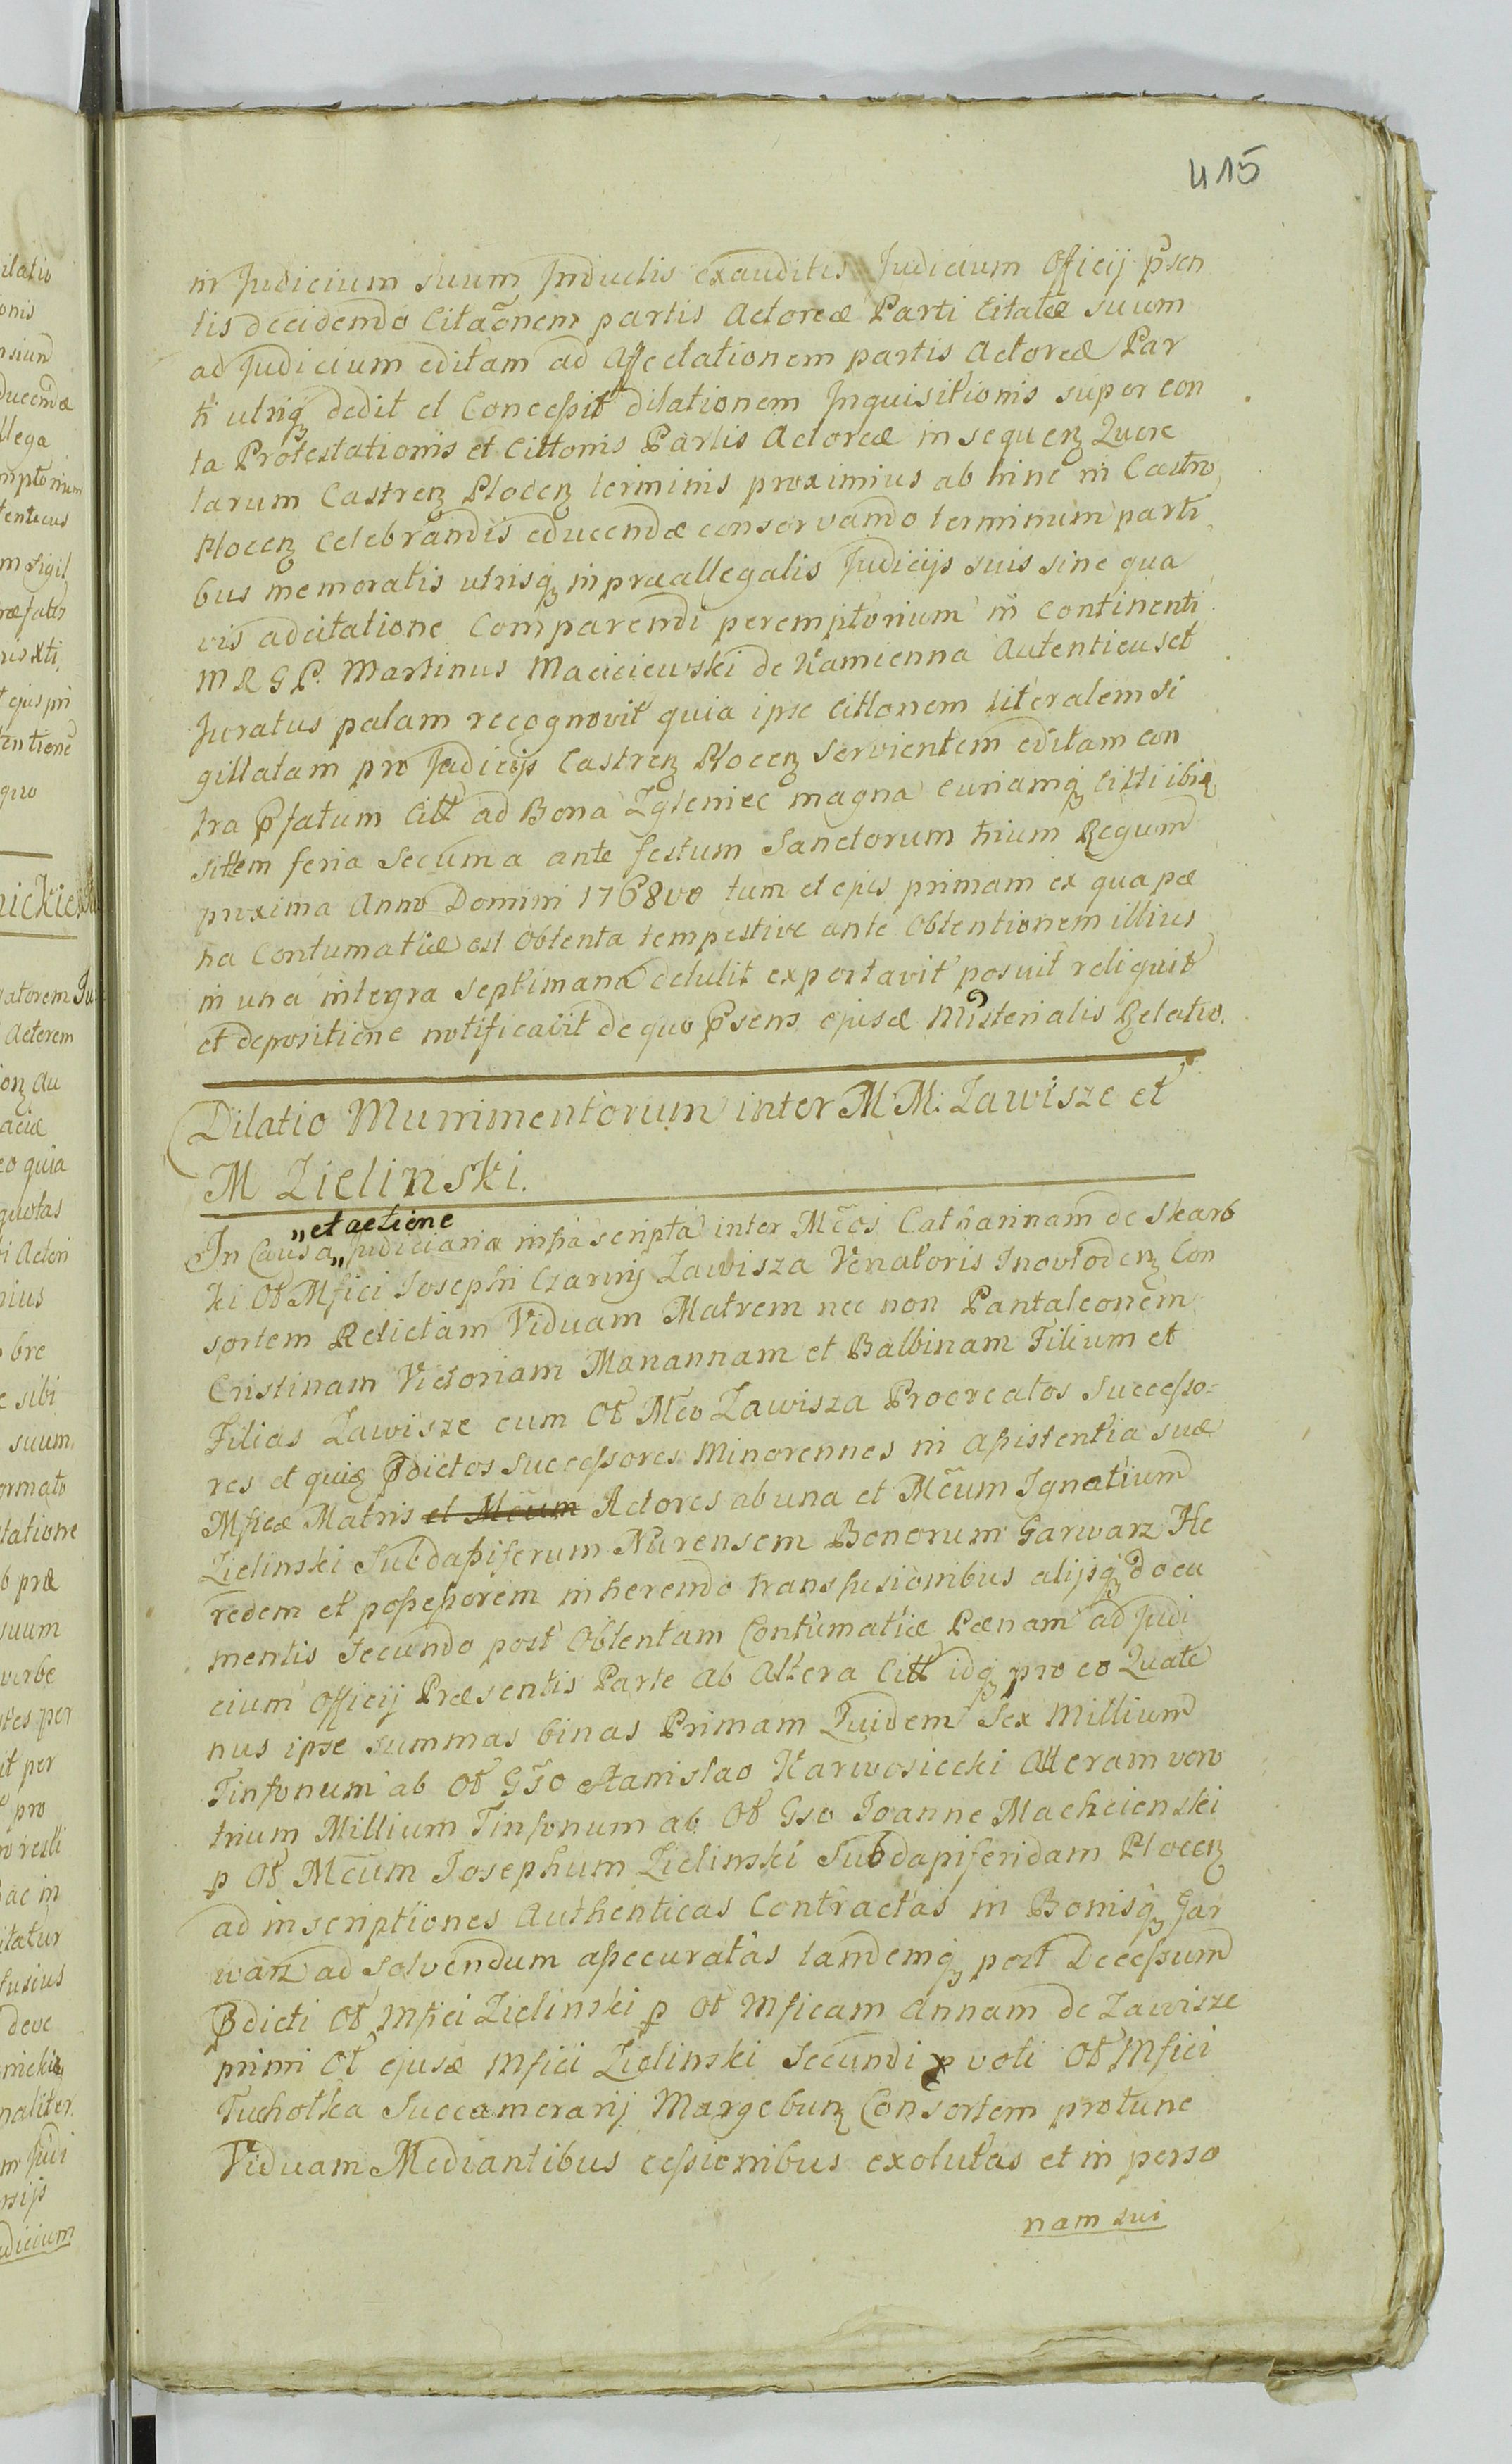 415
in Judicium suum Inductis exauditis Judicium Officij p̃sen
tis decidendo Citãonem partis Actoreæ Parti Citatæ suum
ad Judicium editam ad Affectationem partis Actoreæ Par
ti utriq̨ dedit et Concessit dilationem Inquisitionis super con
ta Protestationis et Cittonis Partis Actoreæ in sequenꝫ Quere
larum Castrenꝫ Plocenꝫ terminis proximius ab hinc in Castro
Plocenꝫ Celebrandis educendæ conservando terminum parti
bus memoratis utrisq̨ in præallegatis Judicijs suis sine qua
vis adcitatione Comparendi peremptorium in continenti
M R G P. Martinus Maciciewski de Kamienna Autenticus et
Juratus palam recognovit quia ipse Cittonem literalem si
gillatam pro Judicijs Castrenꝫ Plocenꝫ Servientem editam con
tra p̃fatum Citt ad Bona Zgleniec magna Curiamq̨ Citti ibiq̨
sittem feria Secunda ante festum Sanctorum trium Regum
proxima Anno Domini 1768vo tum et ejus primam ex qua pæ
na Contumatiæ est Obtenta tempestive ante Obtentionem illius
in una integra Septimana detulit exportavit posuit reliquit
et depositione notificavit de quo p̃sens ejusd Misterialis Relatio.
Dilatio Munimentorum inter M M: Zawisze et
M Zielinski.
„et actione
In Causa„ Judiciaria infra scripta inter Mc̃os Catharinam de Skarb
ki Ol Mfici Josephi Czarnij Zawisza Venatoris Inovlodenꝫ Con
sortem Relictam Viduam Matrem nec non Pantaleonem
Cristinam Victoriam Mariannam et Balbinam Filium et
Filias Zawisze cum Ol Mc̃o Zawisza Procreatos Successo=
res et quiꝫ p̃dictos Successores Minorennes in Assistentia suæ
Mficæ Matris et Mc̃um Actores ab una et Mc̃um Ignatium
Zielinski Subdapiferum Nurensem Bonorum Garwarz He
redem et possessorem inherendo transfusionibus alijsq̨ docu
mentis Secundo post Obtentam Contumatiæ Pænam ad Judi
cium Officij Præsentis Parte ab Altera Citt idq̨ pro eo Quate
nus ipse summas binas Primam Quidem Sex Millium
Tinfonum ab Ol Gso Stanislao Karwosiecki Alteram vero
trium Millium Tinfonum ab Ol Gso Joanne Machcienski
p Ol Mc̃um Josephum Zielinski Subdapiferidam Plocenꝫ
ad inscriptiones Authenticas Contractas in Bonisq̨ Gar
warz ad Solvendum assecuratas tandemq̨ post Decessum
p̃dicti Ol Mfici Zielinski p Ol Mficam Annam de Zawisze
primi Ol ejusd Mfici Zielinski Secundi voti Ol Mfici
Tuchołka Succamerarij Margebunꝫ Consortem protunc
Viduam Mediantibus cessionibus exolutas et in perso
nam sui